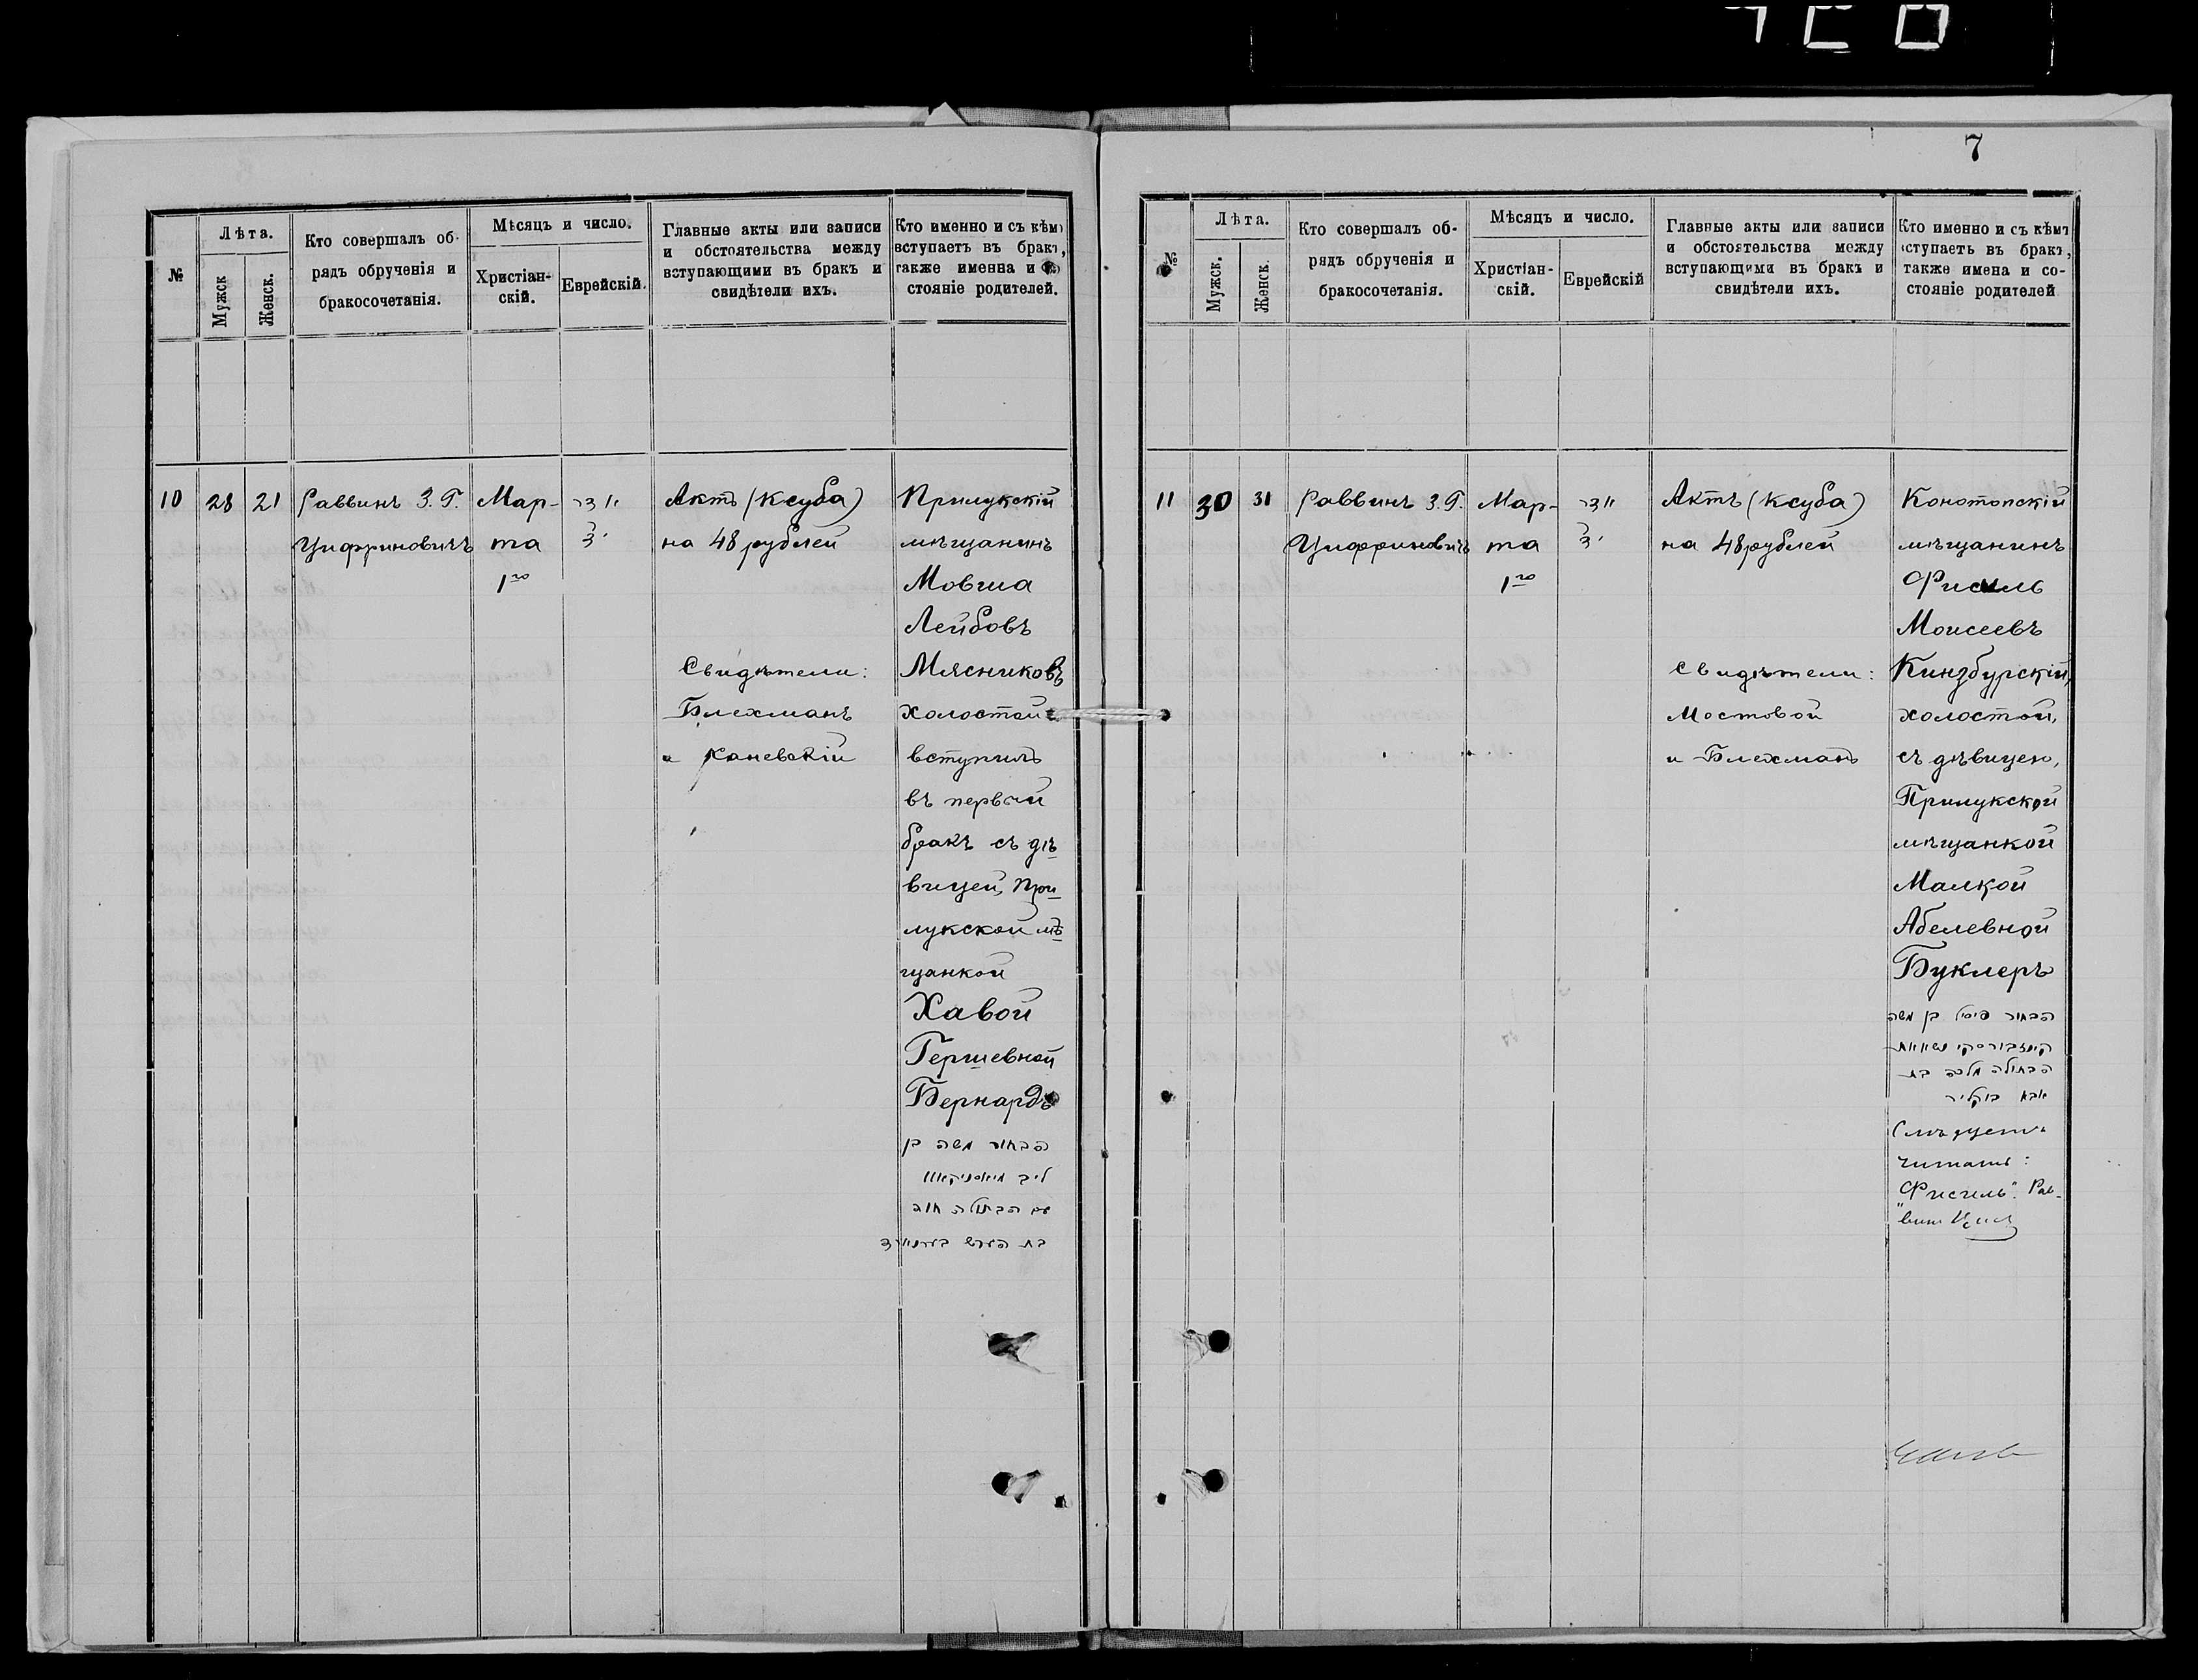 7
№
Лѣта.
Мужск
Женск.
Кто совершалъ об-
рядъ обрученія и
бракосочетанія.
Мѣсяцъ и число.
Христіан-
скій.
Еврейскій.
Главные акты или записи
и обстоятельства между
вступающими въ бракъ и
свидѣтели ихъ.
Кто именно и съ кѣмъ
вступаетъ въ бракъ,
также именна и
стояніе родителей.
10
28
21
Раввинъ З. Г.
Цифриновичъ
Мар-
та
1го
Актъ (Ксуба)
на 48 рублей
Свидѣтели:
Блехманъ
и Каневскій
Прилукскій
мѣщанинъ
Мовша
Лейбовъ
Мясниковъ
холостой
вступилъ
въ первый
бракъ съ дѣ
вицей, При
лукской мѣ
щанкой
Хавой
Гершевной
Бернардъ
הבחור משה בן
ליב מיאסניקאוו
עם הבתולה חוה
בת הערש בערנארד
№
Лѣта.
Мужск.
Женск.
Кто совершалъ об-
рядъ обрученія и
бракосочетанія.
Мѣсяцъ и число.
Христіан-
скій.
Еврейскій
Главные акты или записи
и обстоятельства между
вступающими въ бракъ и
свидѣтели ихъ.
Кто именно и съ кѣмъ
вступаетъ въ бракъ,
также имена и со-
стояніе родителей
11
30
31
Раввинъ З. Г.
Цифриновичъ
Мар-
та
1го
Актъ (Ксуба)
на 48 рублей
Свидѣтели:
Мостовой
и Блехманъ
Конотопскій
мѣщанинъ
Фисиль
Моисеевъ
Кинзбурскій,
холостой,
съ дѣвицею,
Прилукской
мѣщанкой
Малкой
Абелевной
Буклеръ
הבחור פיסיל בן משה
קינזבורסקי
הבתולה מלכה בת
אבא בוקליר
Слѣдуетъ
читать:
"Фисиль". Рав-
винъ